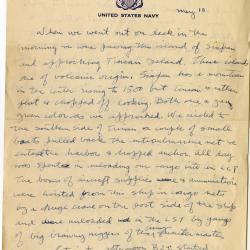 UNITED STATES NAVY
May 18
When we went out on deck in the
morning we were passing the island of Saipan
and approaching Tinian Island. These islands
are of volcanic origin. Saipan has a mountain
in the center rising to 1500 but Tinian is rather
flat & chopped off looking. Both are a gray
green color as we approached. We sailed to
the southern side of Tinian a couple of small
boats pulled back the antisubmarine net we
entered the harbor & dropped anchor. All day
was spent in unloading our cargo into an LCT
The boxes of aircraft supplies & ammunition
were hoisted from this ship in cargo nets
by a huge crane on the port side of the ship
and were unloaded in the LST by gangs
of big brawny niggers of the quartermaster
afternoon Bob started